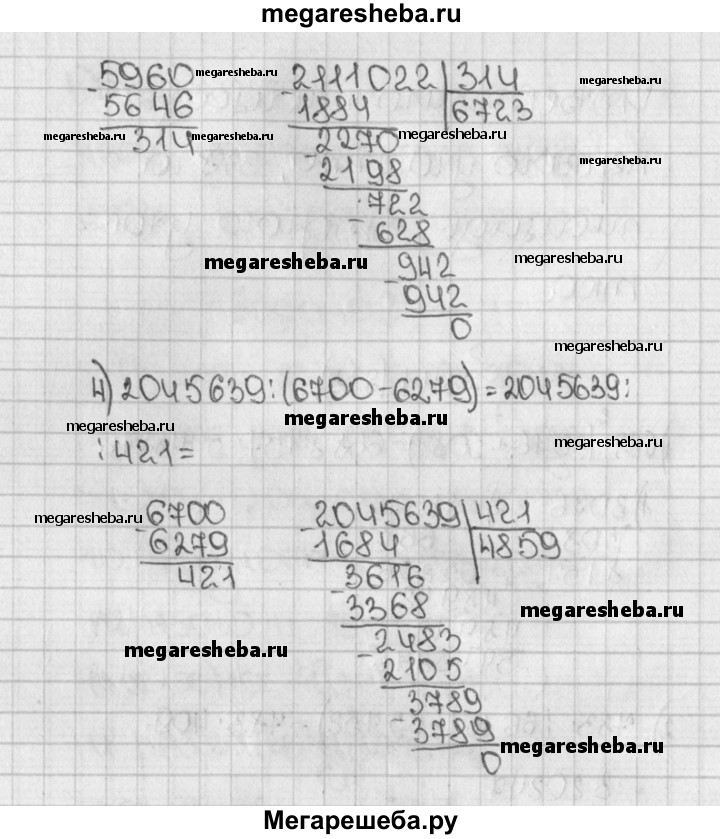 megaresheba.ru
5960 megaresheba.ru 2111022 314 megaresheba.ru
- 5646 - 1884 6723
megaresheba.ru 314 megaresheba.ru 2270 megaresheba.ru
- 2198 megaresheba.ru
722
- 628
megaresheba.ru 942 megaresheba.ru
- 942
0
megaresheba.ru
4) 2045639:(6700-6279)=2045639:
megaresheba.ru megaresheba.ru
:421= megaresheba.ru
megaresheba.ru 6700 2045639 421
- 6279 - 1684 4859
421 3616
- 3368 megaresheba.ru
2483
megaresheba.ru - 2105
3789
- 3789
0 megaresheba.ru
Мегарешеба.ру